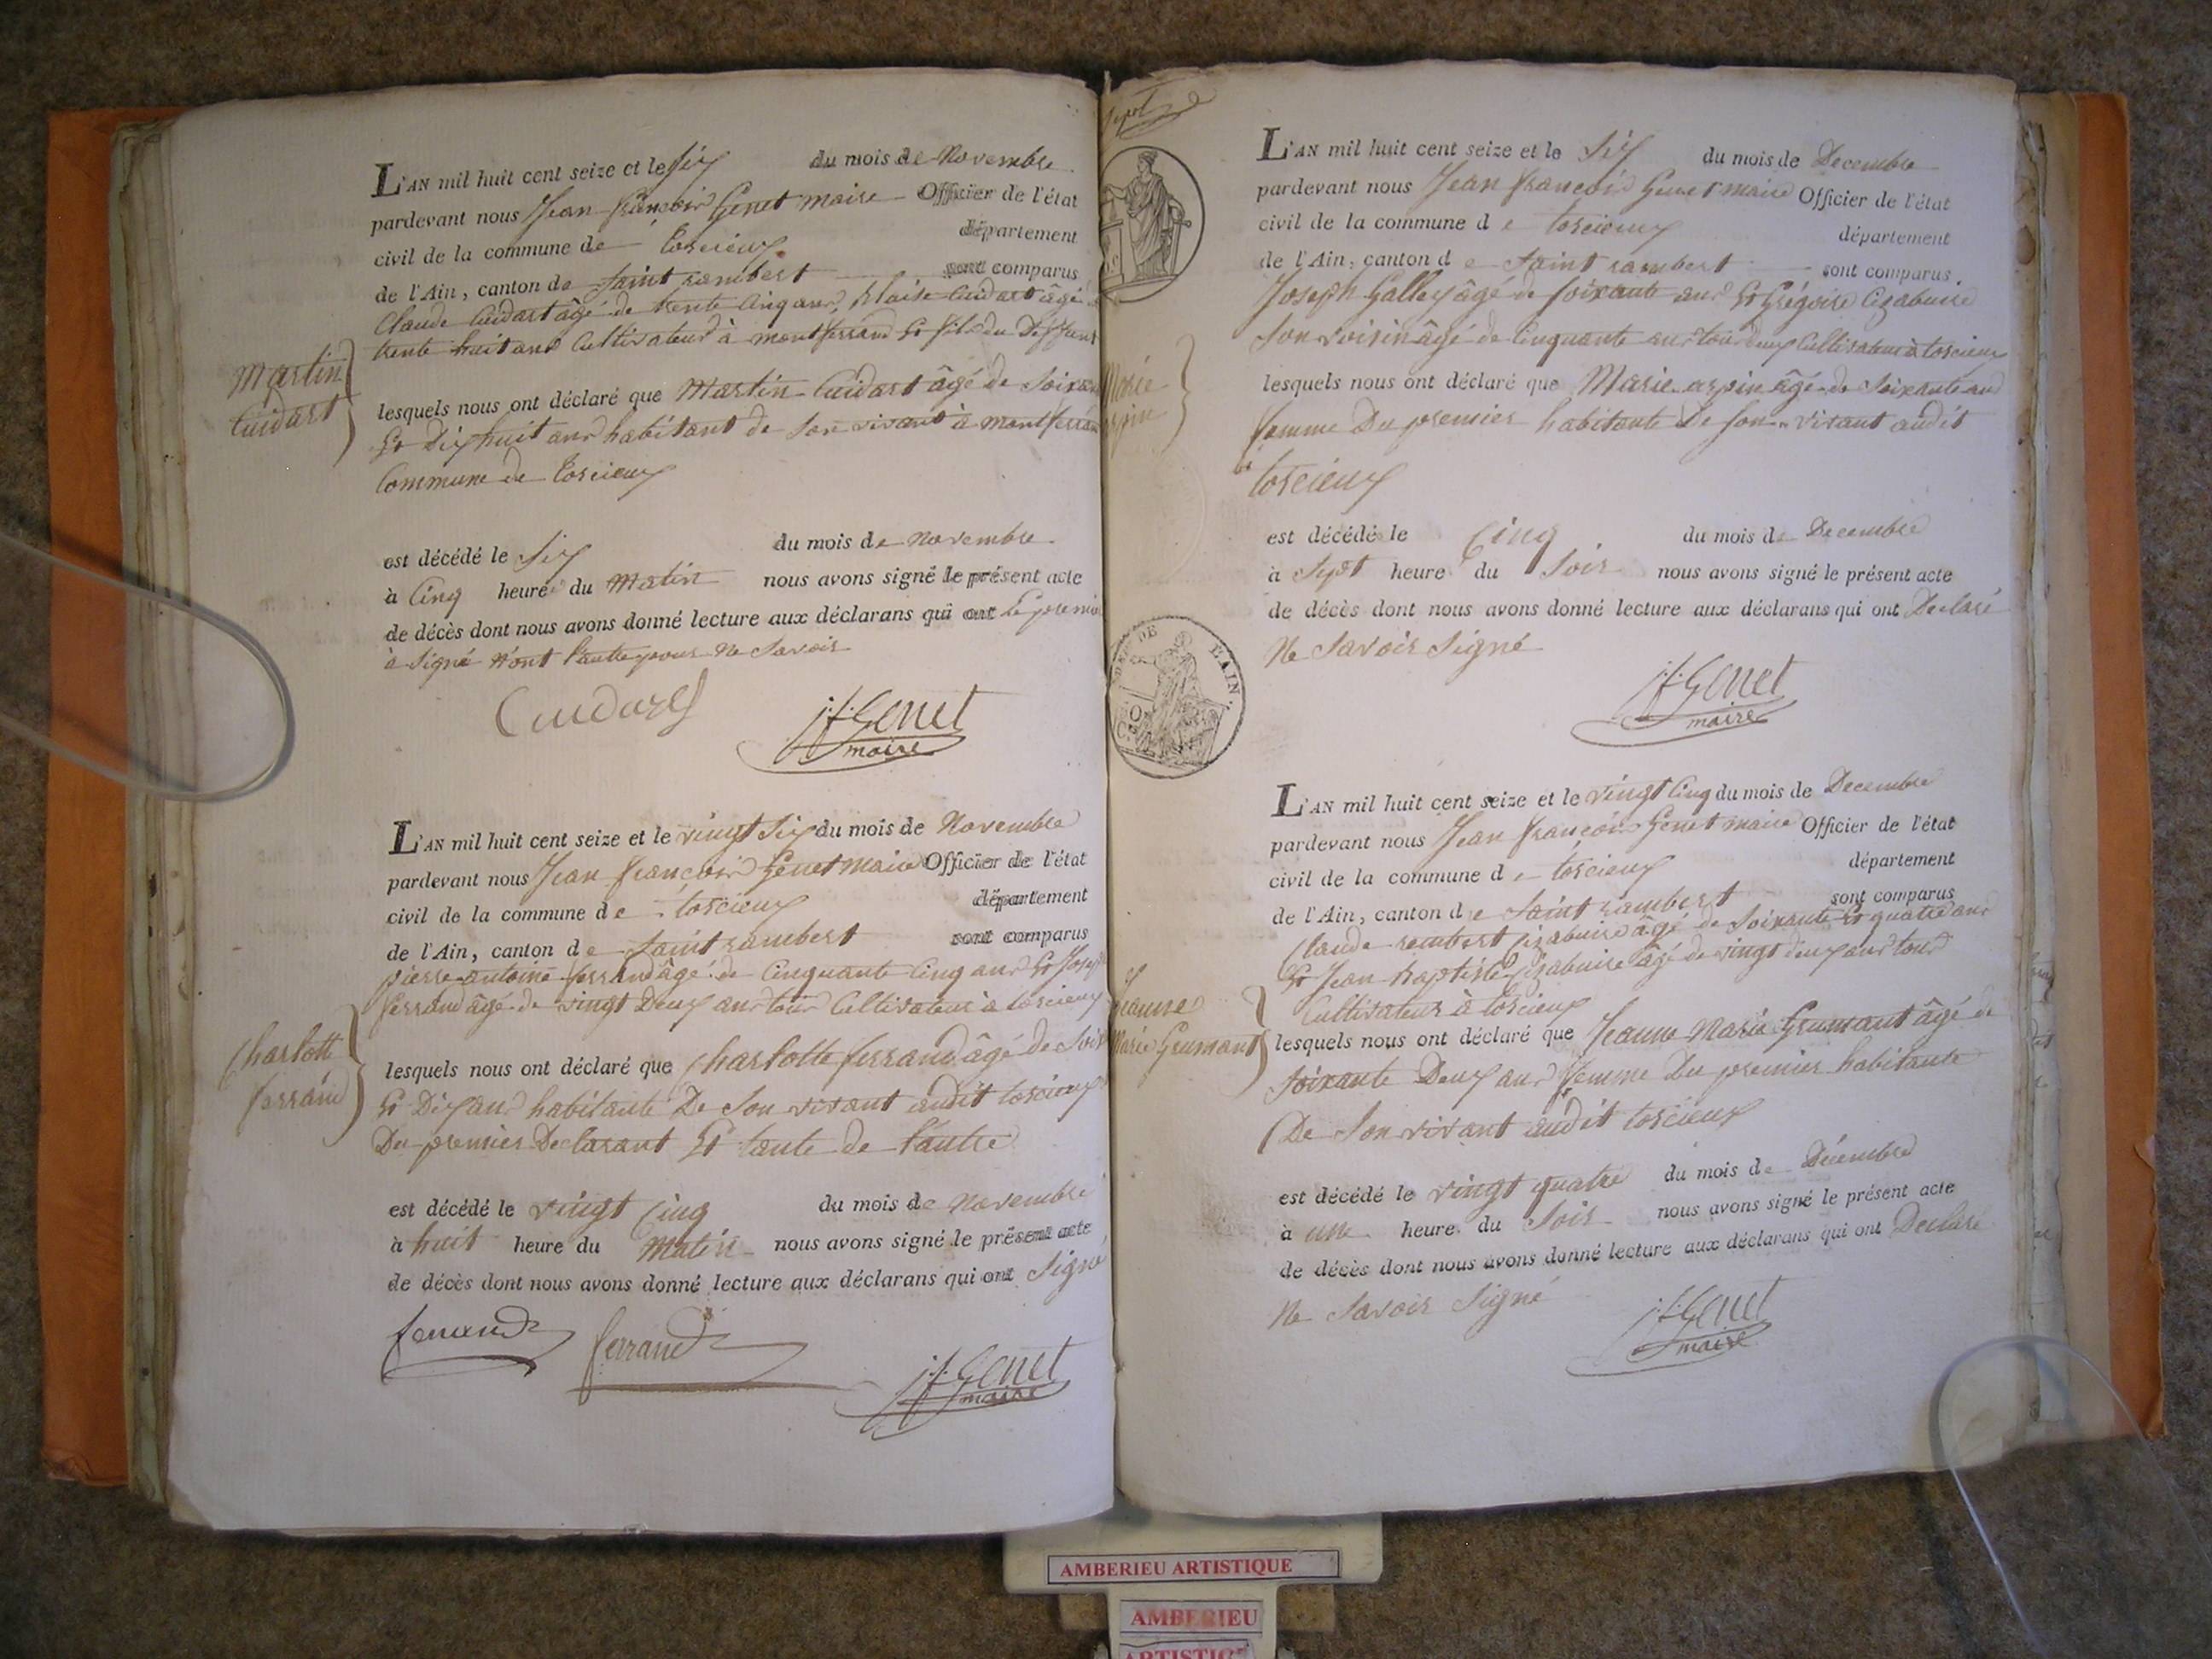 L'AN mil huit cent seize et le Six du mois de Novembre
pardevant nous Jean françois Genet maire Officier de l'état
civil de la commune de torcieux département
de l'Ain, canton de Saint rambert sont comparus
Claude Cuidart âgé de trente Cinq ans, Blaise Cuidart âgé
trente huit ans Cultivateurs à montferrand Et fils du Deffunt
Martin
Cuidart
lesquels nous ont déclaré que Martin Cuidart âgé de Soixan
Et Dix huit ans habitant de Son vivant à montferran
Commune de torcieux
est décédé le Six du mois de novembre
à Cinq heure du Matin nous avons signé le présent acte
de décès dont nous avons donné lecture aux déclarans qui ont Le premier
à Signé n'ont l'autre pour ne Savoir
Cuidart
j.f. Genet
maire
L'AN mil huit cent seize et le vingt Six du mois de Novembre
pardevant nous Jean françois Genet maire Officier de l'état
civil de la commune de torcieux département
de l'Ain, canton de Saint rambert sont comparus
pierre antoine ferrand âgé de Cinquante Cinq ans Et Joseph
ferrand âgé de vingt Deux ans tous Cultivateurs à torcieux
Charlotte
ferrand
lesquels nous ont déclaré que Charlotte ferrand âgé de Soix
Et Dix ans habitante De Son vivant audit torcieux
Du premier Declarant Et tante de l'autre
est décédé le vingt Cinq du mois de Novembre
à huit heure du Matin nous avons signé le présent acte
de décès dont nous avons donné lecture aux déclarans qui ont Signé
ferrand ferrand
j.f. Genet
maire
Sept
L'AN mil huit cent seize et le Six du mois de Decembre
pardevant nous Jean françois Genet maire Officier de l'état
civil de la commune de torcieux département
de l'Ain, canton de Saint rambert sont comparus
Joseph Galley âgé de soixante ans Et Grégoire Cizabuire
Son voisin âgé de Cinquante ans tous deux Cultivateurs à torcieux
Marie
arpin
lesquels nous ont déclaré que Marie arpin âgé de Soixante ans
femme Du premier habitante De son vivant audit
torcieux
est décédé le Cinq du mois de Decembre
à Sept heure du Soir nous avons signé le présent acte
de décès dont nous avons donné lecture aux déclarans qui ont Declaré
Ne Savoir Signé
j.f. Genet
maire
DE L'AIN
L'AN mil huit cent seize et le vingt Cinq du mois de Decembre
pardevant nous Jean françois Genet maire Officier de l'état
civil de la commune de torcieux département
de l'Ain, canton de Saint rambert sont comparus
Claude rembert Cizabuire âgé de Soixante Et quatre ans
Et Jean baptiste Cizabuire âgé de vingt deux ans tous
Cultivateurs à torcieux
Jeanne
Marie Grumant
lesquels nous ont déclaré que Jeanne Marie Grumant âgé de
Soixante Deux ans femme Du premier habitante
De Son vivant audit torcieux
est décédé le vingt quatre du mois de Décembre
à une heure du Soir nous avons signé le présent acte
de décès dont nous avons donné lecture aux déclarans qui ont Declaré
Ne Savoir Signé
j.f. Genet
maire
AMBERIEU ARTISTIQUE
AMBERIEU
ARTISTIQUE